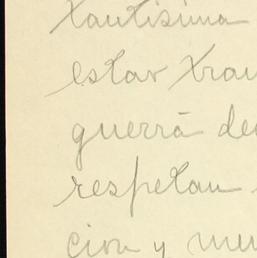 tantisima
estar tran
guerra de
respetan
cion y mu